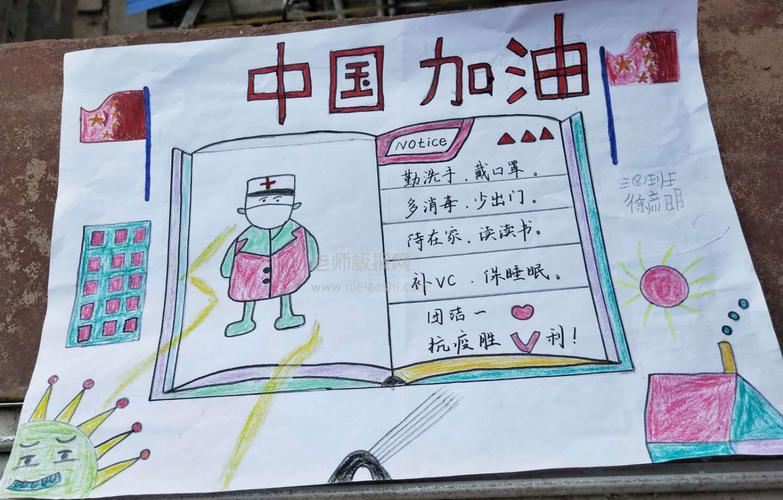 中国加油
Notice
勤洗手．戴口罩。
多消毒．少出门。
待在家．读读书。
补VC．保睡眠。
团结一
抗疫胜利！
三(2)班
徐彦明
老师板报网
www.nielaoshi.com